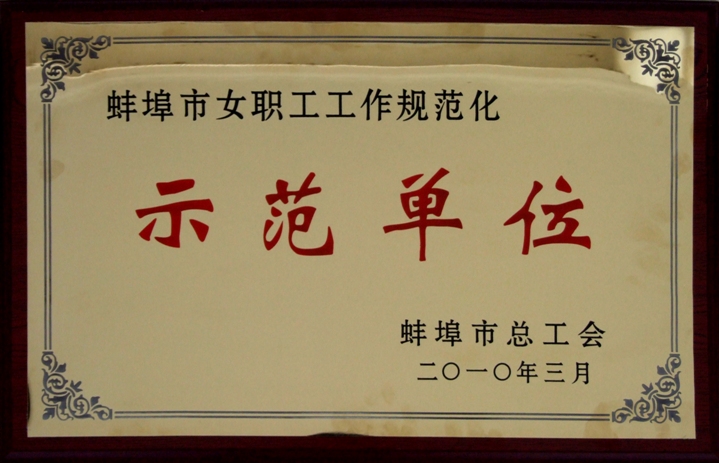 蚌埠市女职工工作规范化
示范单位
蚌埠市总工会
二〇一〇年三月